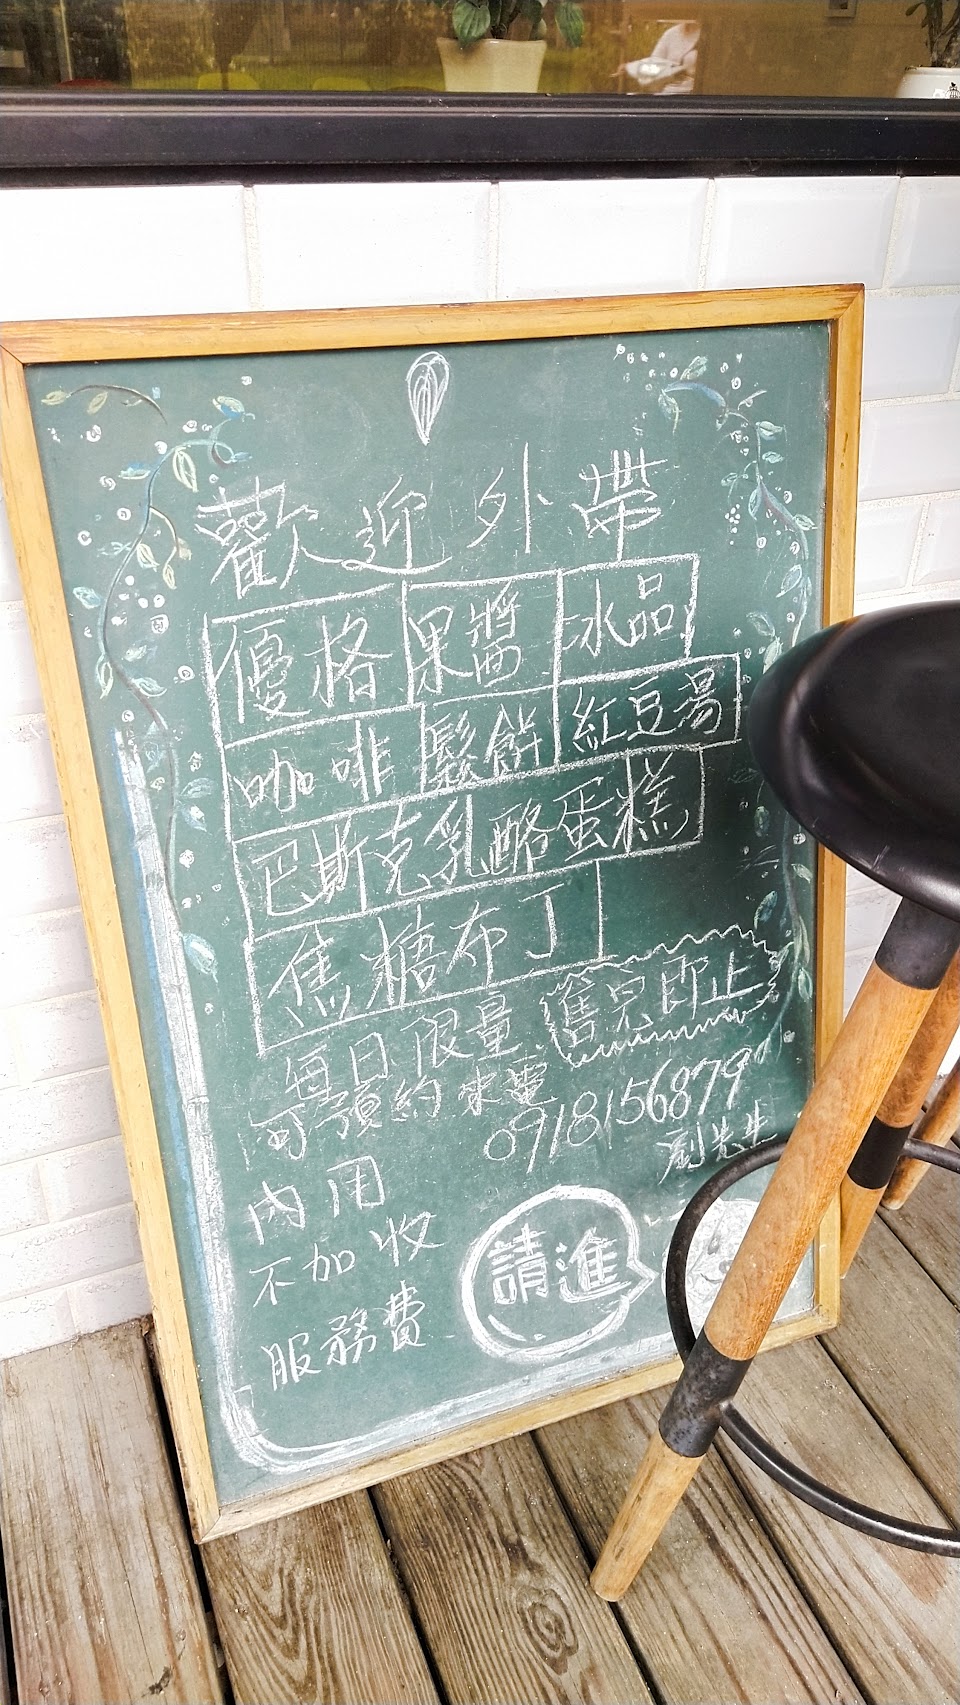 歡迎外帶
優格 果醬 冰品
咖啡 鬆餅 紅豆湯
巴斯克乳酪蛋糕
焦糖布丁
每日限量 售完即止
可預約來電
0918156879
劉先生
內用
不加收
服務費
請進